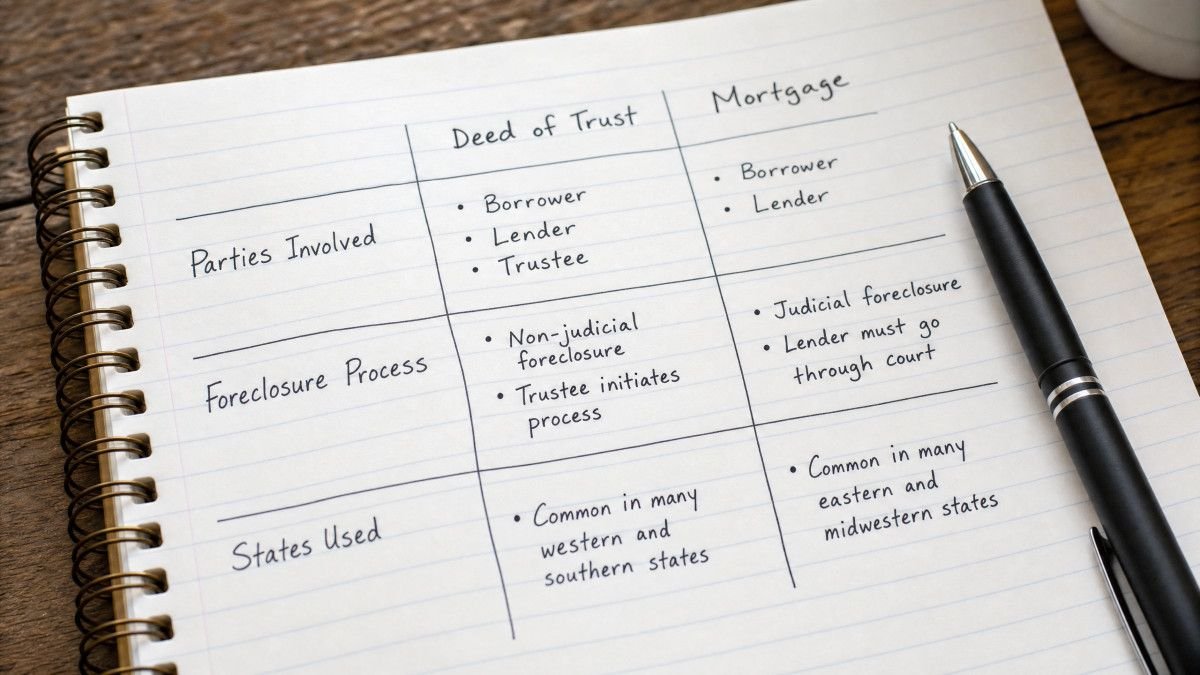 Deed of Trust
Mortgage
Parties Involved
• Borrower
• Lender
• Trustee
• Borrower
• Lender
Foreclosure Process
• Non-judicial
foreclosure
• Trustee initiates
process
• Judicial foreclosure
• Lender must go
through court
States Used
• Common in many
western and
southern states
• Common in many
eastern and
midwestern states